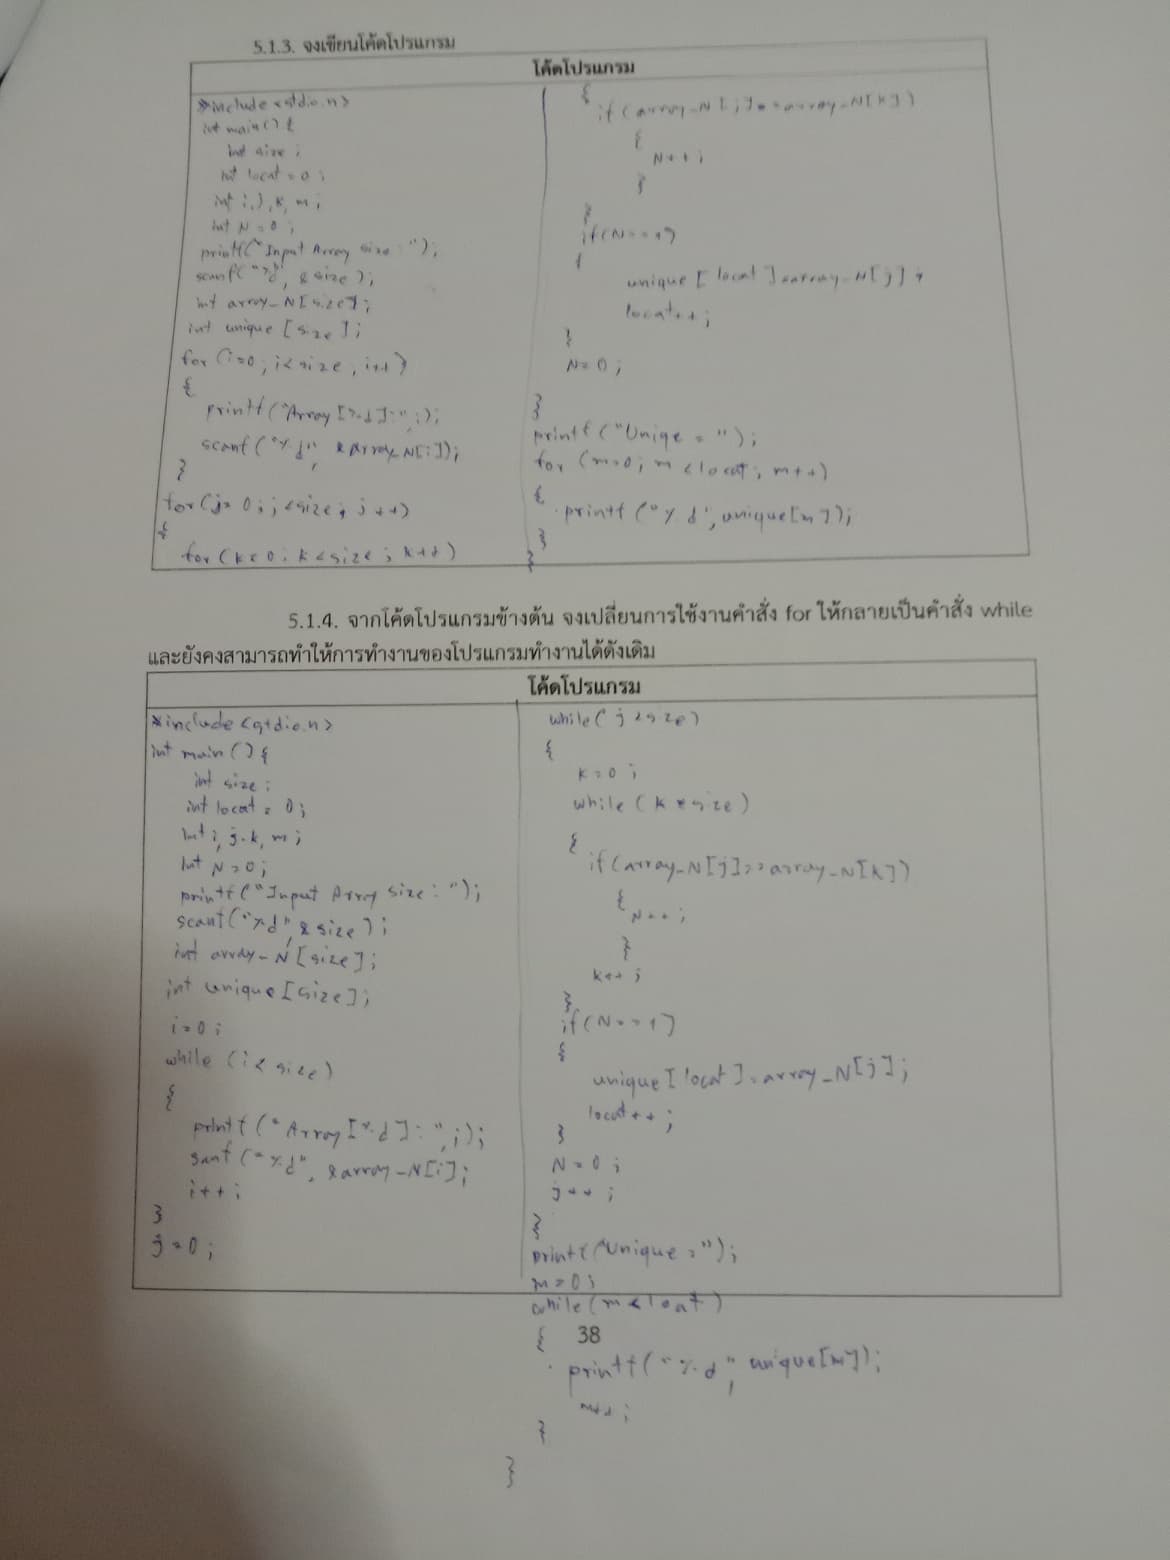 5.1.3. จงเขียนโค้ดโปรแกรม
โค้ดโปรแกรม
#include <stdio.h>
int main() {
int size ;
int locat = 0 ;
int i,j, k, m ;
int N = 0 ;
printf("Input Array size : ");
scanf("%d", & size );
int array_N [size];
int unique [size];
for (i=0; i< size ; i++)
{
printf("Array [%d]:", i);
scanf("%d", &array_N[i]);
}
for(j= 0; j <size ; j++)
{
for (k=0; k <size ; k++)
{
if (array_N[j]==array_N[k])
{
N++ ;
}
}
if(N==1)
{
unique [ locat ]=array_N[j] ;
locat++ ;
}
N=0 ;
}
printf ("Uniqe = ");
for (m=0; m <locat; m++)
{
printf ("%d",unique[m]);
}
}
5.1.4. จากโค้ดโปรแกรมข้างต้น จงเปลี่ยนการใช้งานคำสั่ง for ให้กลายเป็นคำสั่ง while
และยังคงสามารถทำให้การทำงานของโปรแกรมทำงานได้ดังเดิม
โค้ดโปรแกรม
#include <stdio.h>
int main () {
int size ;
int locat = 0 ;
int i, j, k, m ;
int N = 0 ;
printf("Input Array size : ");
scanf("%d", & size );
int array_N [size];
int unique [size];
i=0 ;
while (i< size)
{
printf ("Array [%d] : ",i);
sanf ("%d", &array_N[i];
i++ ;
}
j=0 ;
while( j <size)
{
k=0 ;
while ( k <size)
{
if (array_N[j]==array_N[k])
{
N++ ;
}
k++ ;
}
if (N==1)
{
unique [ locat ]=array_N[j];
locat++ ;
}
N=0 ;
j++ ;
}
printf("Unique =");
m=0 ;
while (m<locat)
38
{
printf("%d", unique[m]);
m++ ;
}
}